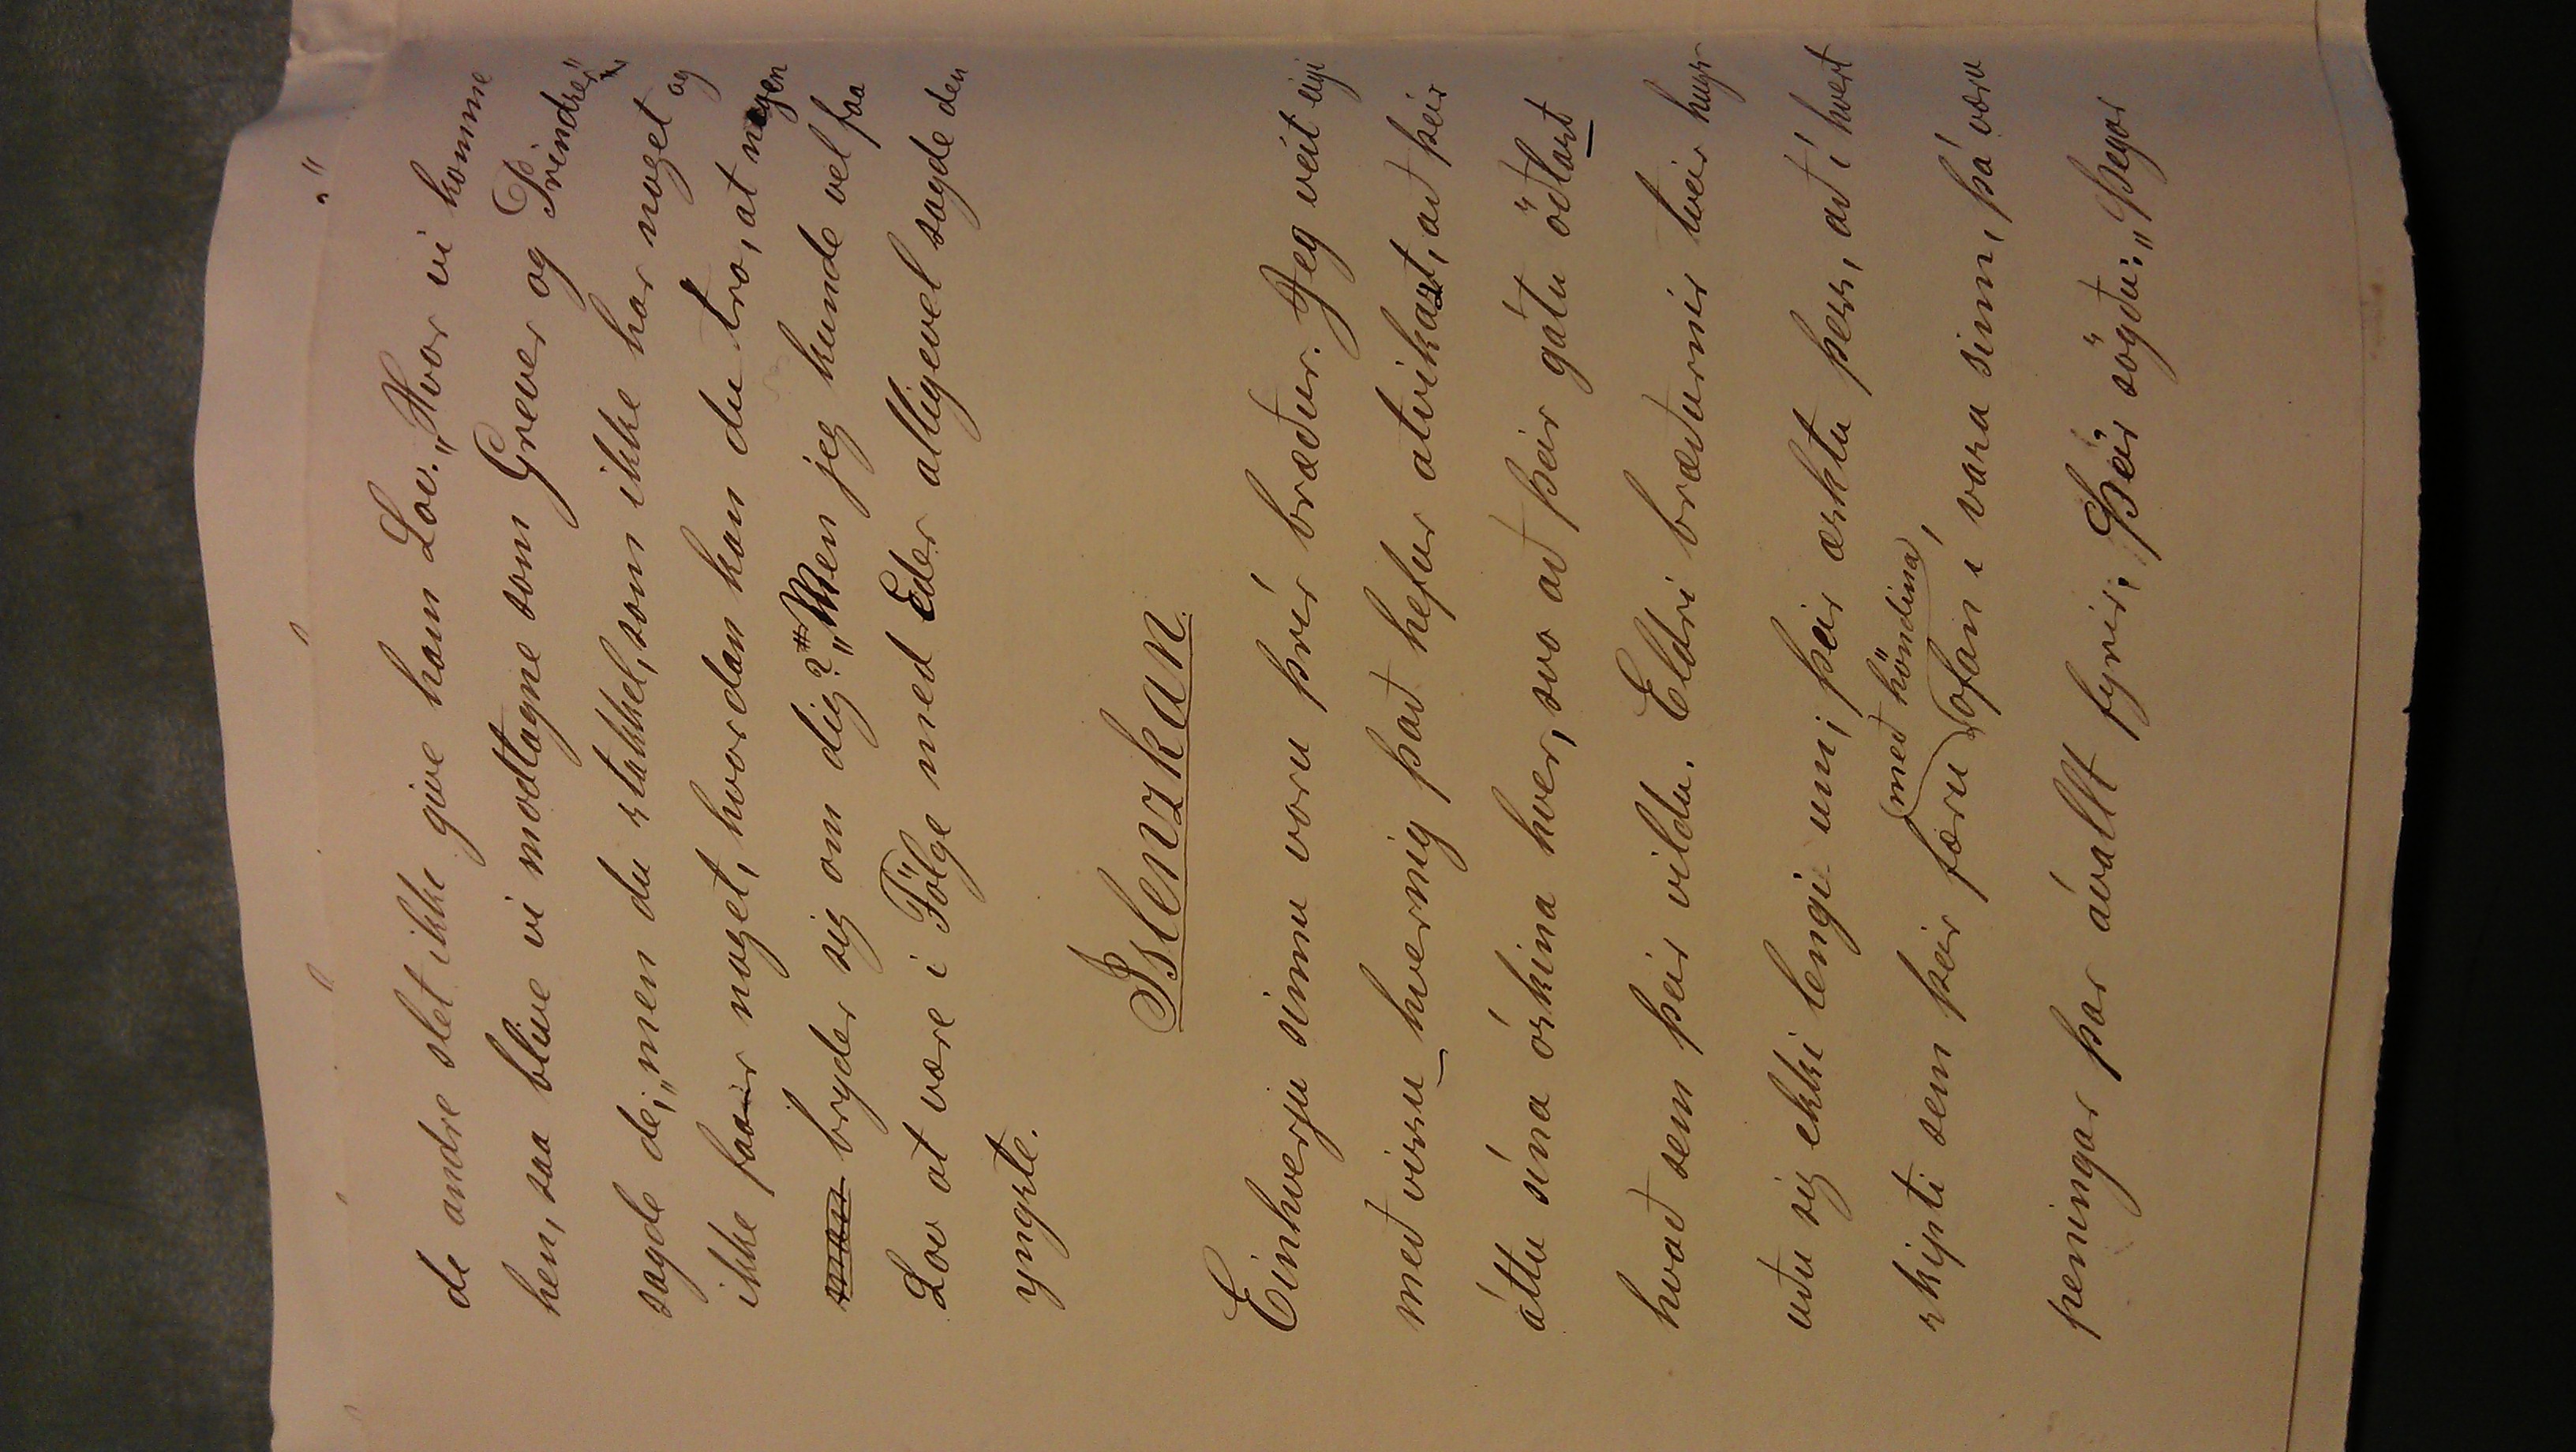 de andre slet ikke give ham Lov. „Hvor vi komme
hen, saa blive vi modtagne som Grever og Prindser"
sagde de; „men du stakkel, som ikke har noget og
ikke faair noget, hvordan kan du tro, at nogen
bryder sig om dig? „Men jeg kunde vel faa
Lov at være i Følge med Eder alligevel sagde den
yngste.
Íslenzkan.
Einhverju sinnu voru þrír bræður. Jeg veit eigi
með vissu hvernig það hefur atvikast, að þeir
áttu sína óskina hver, svo að þeir gátu öðlast
hvað sem þeir vildu. Eldri bræðurnir tveir hugs
uðu sig ekki lengi um; þeir æsktu þess, að í hvert
(með höndina)
skipti sem þeir færu ofan í vasa sinn, þá væru
peningar þar ávallt fyrir. Þeir sögðu: „Þegar